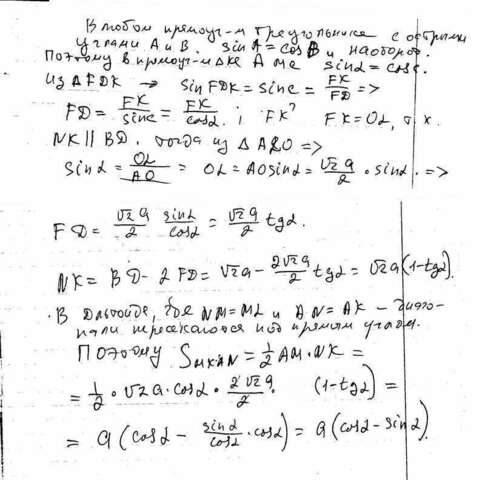 В любом прямоуг-м треугольнике с острыми
углами A и B. sin A = cos B и наоборот.
Поэтому в прямоуг-м Δке AMC sin α = cos C.
Из Δ FDK → sin FDK = sin C = FK/FD =>
FD = FK/sin C = FK/cos α. ; FK? FK = OL, т.к.
NK || BD, тогда из Δ ALO =>
sin α = OL/AO = OL = AO sin α = √2 a/2 · sin α. =>
FD = √2 a/2 sin α/cos α = √2 a/2 tg α.
NK = BD - 2FD = √2 a - 2√2 a/2 tg α = √2 a (1-tg α).
В дельтоиде, где NM = ML и AN = AK - диаго-
нали пересекаются под прямым углом.
Поэтому S MKAN = 1/2 AM · NK =
= 1/2 · √2 a · cos α · 2√2 a/2 (1-tg α) =
= a (cos α - sin α/cos α · cos α) = a (cos α - sin α).